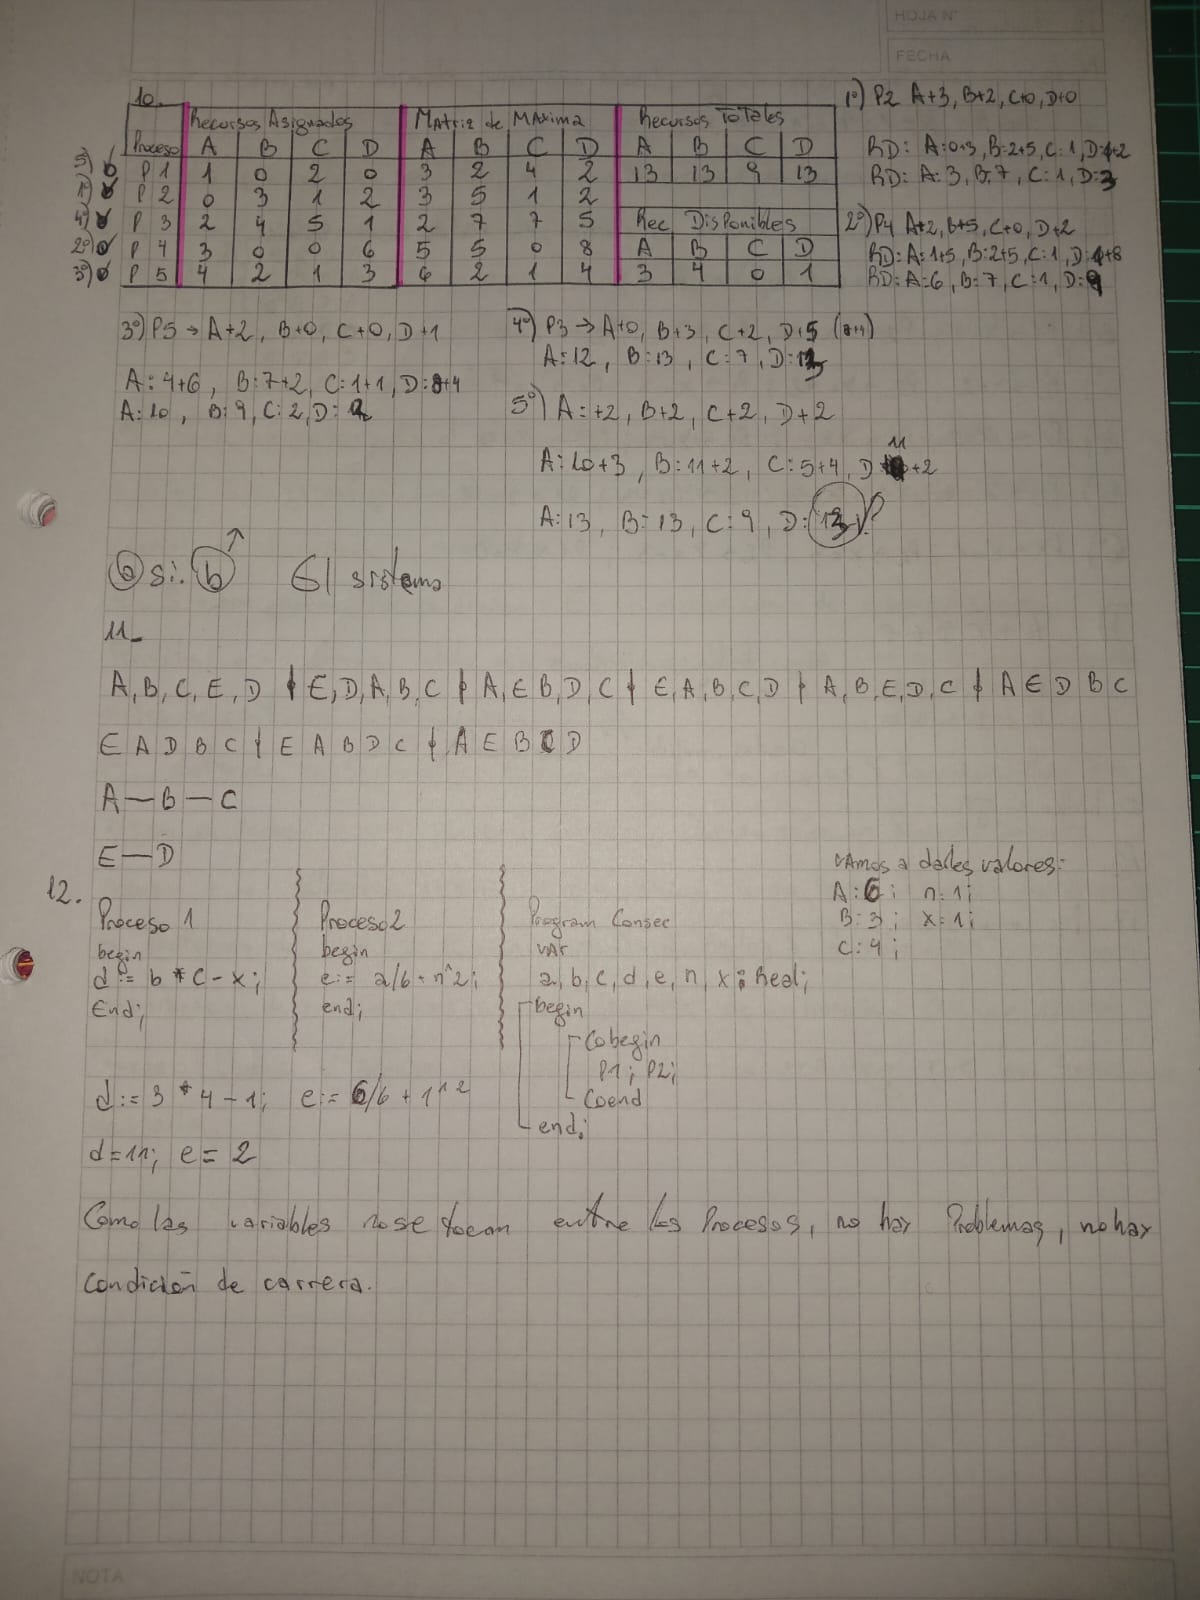 HOJA N°
FECHA
10.
Recursos Asignados Matriz de MAxima Recursos ToTales
Proceso A B C D A B C D A B C D
5º) P 1 1 0 2 0 3 2 4 2 13 13 9 13
1º) P 2 0 3 1 2 3 5 1 2
4º) P 3 2 4 5 1 2 7 7 5 Rec Disponibles
2º) P 4 3 0 0 6 5 5 0 8 A B C D
3º) P 5 4 2 1 3 6 2 1 4 3 4 0 1
1º) P2 A+3, B+2, C+0, D+0
RD: A:0+3, B:2+5, C:1, D:1+2
RD: A:3, B:7, C:1, D:3
2º) P4 A+2, B+5, C+0, D+2
RD: A:1+5, B:2+5, C:1, D:1+8
RD: A=6, B:7, C:1, D:9
3º) P5 → A+2, B+0, C+0, D+1
A: 4+6, B:7+2, C:1+1, D:8+4
A:10, B:9, C:2, D:
4º) P3 → A+0, B+3, C+2, D+5
A:12, B:13, C:7, D:
5º) A:+2, B+2, C+2, D+2
11
A:10+3, B:11+2, C:5+4, D +2
A:13, B:13, C:9, D:13?
a si. b El sistema
11_
A, B, C, E, D | E, D, A, B, C | A, E B, D, C | E, A, B, C, D | A, B, E, D, C | A E D B C
E A D B C | E A B D C | A E B C D
A — B — C
E — D
12.
Proceso 1
begin
d := b * c - x;
End;
Proceso2
begin
e:= a/6 + n^2;
end;
Program Consec
var
a, b, c, d, e, n, x: Real;
begin
Cobegin
P1; P2;
Coend
end;
vamos a darles valores:
A:6; n:1;
B:3; x:1;
C:4;
d:= 3 * 4 - 1; e:= 6/6 + 1^2
d=11; e= 2
Como las variables no se tocan entre los Procesos, no hay Problemas, no hay
condición de carrera.
NOTA